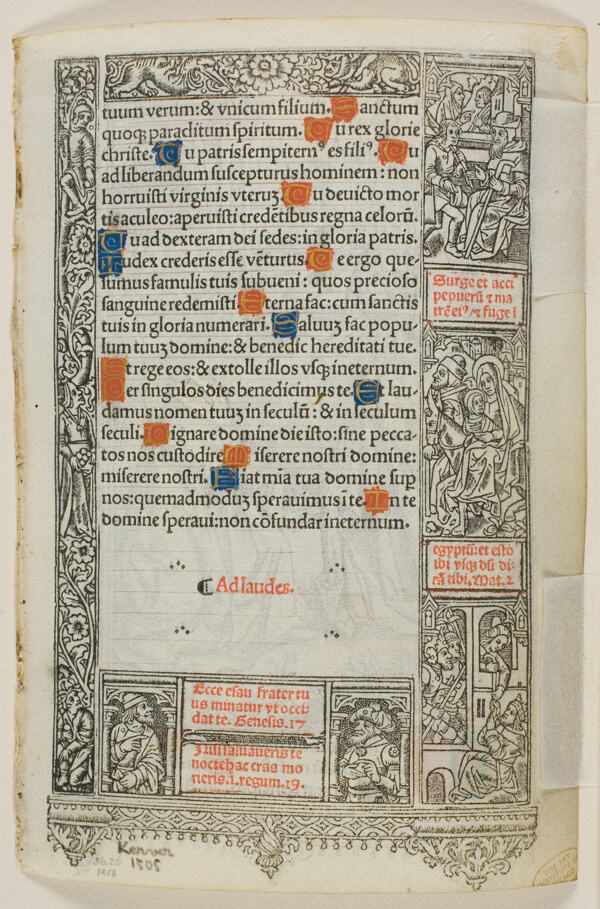 tuum verum:& vnicum filium. Sanctum
quoqꝫ paraclitum spiritum. Tu rex glorie
christe. Tu patris sempiternꝰ es filiꝰ. Tu
ad liberandum suscepturus hominem: non
horruisti virginis vteruꝫ. Tu deuicto mor
tis aculeo:aperuisti credētibus regna celorū.
Tu ad dexteram dei sedes:in gloria patris.
Iudex crederis esse vēturus. Te ergo que-
sumus famulis tuis subueni: quos precioso
sanguine redemisti. Eterna fac:cum sanctis
tuis in gloria numerari. Saluuꝫ fac popu-
lum tuuꝫ domine:& benedic hereditati tue.
Et rege eos:& extolle illos vsqꝫ ineternum.
Per singulos dies benedicimus te. Et lau-
damus nomen tuuꝫ in seculū: & in seculum
seculi. Dignare domine die isto:sine pecca-
to nos custodire. Miserere nostri domine:
miserere nostri. Fiat mīa tua domine sup
nos:quemadmoduꝫ sperauimus ī te. In te
domine speraui:non cōfundar ineternum.
Ad laudes.
Ecce esau frater tu
us minatur vt occi
dat te. Genesis. 17
Nisi saluaueris te
nocte hac cras mo
rieris. 1. regum. 19.
Surge et acci
pe puerū ⁊ ma
trē eiꝰ ⁊ fuge ī
egyptū: et esto
ibi vsqꝫ dū di-
cā tibi. Mat. 2
Kerver
1505